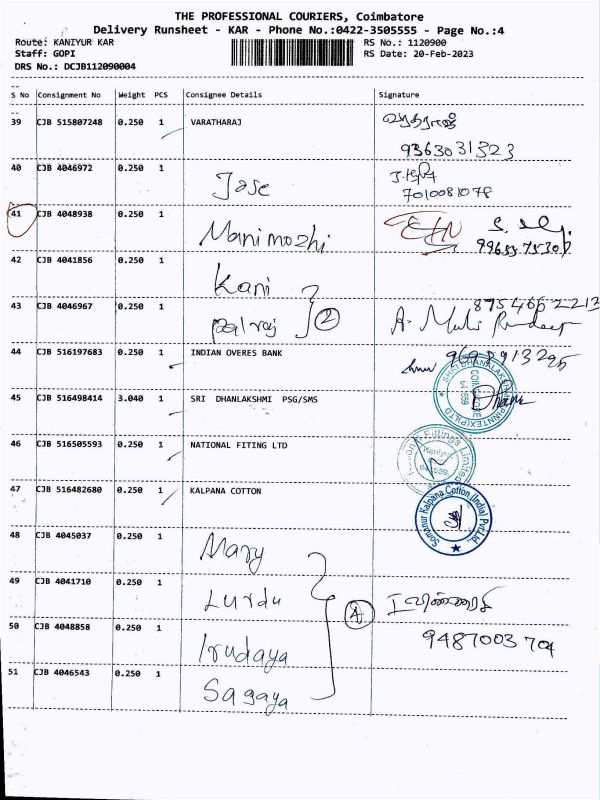 THE PROFESSIONAL COURIERS, Coimbatore
Delivery Runsheet - KAR - Phone No.:0422-3505555 - Page No.:4
Route: KANIYUR KAR RS No.: 1120900
Staff: GOPI RS Date: 20-Feb-2023
DRS No.: DCJB112090004
S No Consignment No Weight PCS Consignee Details Signature
39 CJB 515807248 0.250 1 VARATHARAJ வரதராஜ்
9363031323
40 CJB 4046972 0.250 1 Jose
7010081078
41 CJB 4048938 0.250 1 Manimozhi
9965575307
42 CJB 4041856 0.250 1 Kani
8754662213
43 CJB 4046967 0.250 1 Palraj 2 A. Muli
44 CJB 516197683 0.250 1 INDIAN OVERES BANK 9698913295
45 CJB 516498414 3.040 1 SRI DHANLAKSHMI PSG/SMS
46 CJB 516505593 0.250 1 NATIONAL FITING LTD
Fittings Limited
47 CJB 516482680 0.250 1 KALPANA COTTON
Somanur Kalpana Cotton (India) Pvt.Ltd.
48 CJB 4045037 0.250 1 Mary
49 CJB 4041710 0.250 1 Lurdu 4
50 CJB 4048858 0.250 1 Irudaya 9487003704
51 CJB 4046543 0.250 1 Sagaya